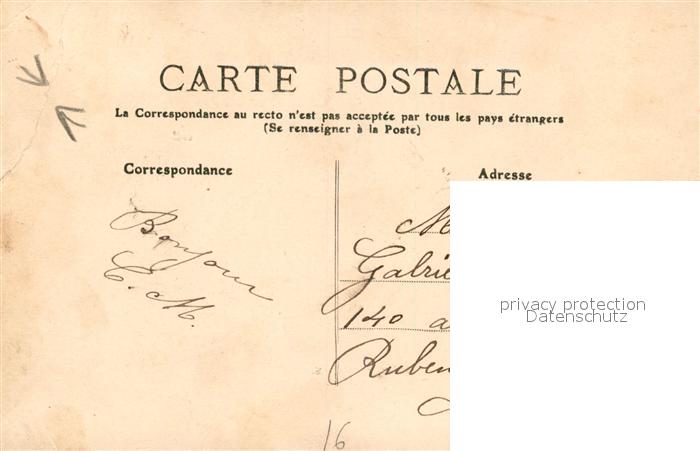 CARTE POSTALE
La Correspondance au recto n'est pas acceptée par tous les pays étrangers
(Se renseigner à la Poste)
Correspondance
Adresse
Bonjour
C. M.
M
Gabrie
140 a
Ruben
16
privacy protection
Datenschutz